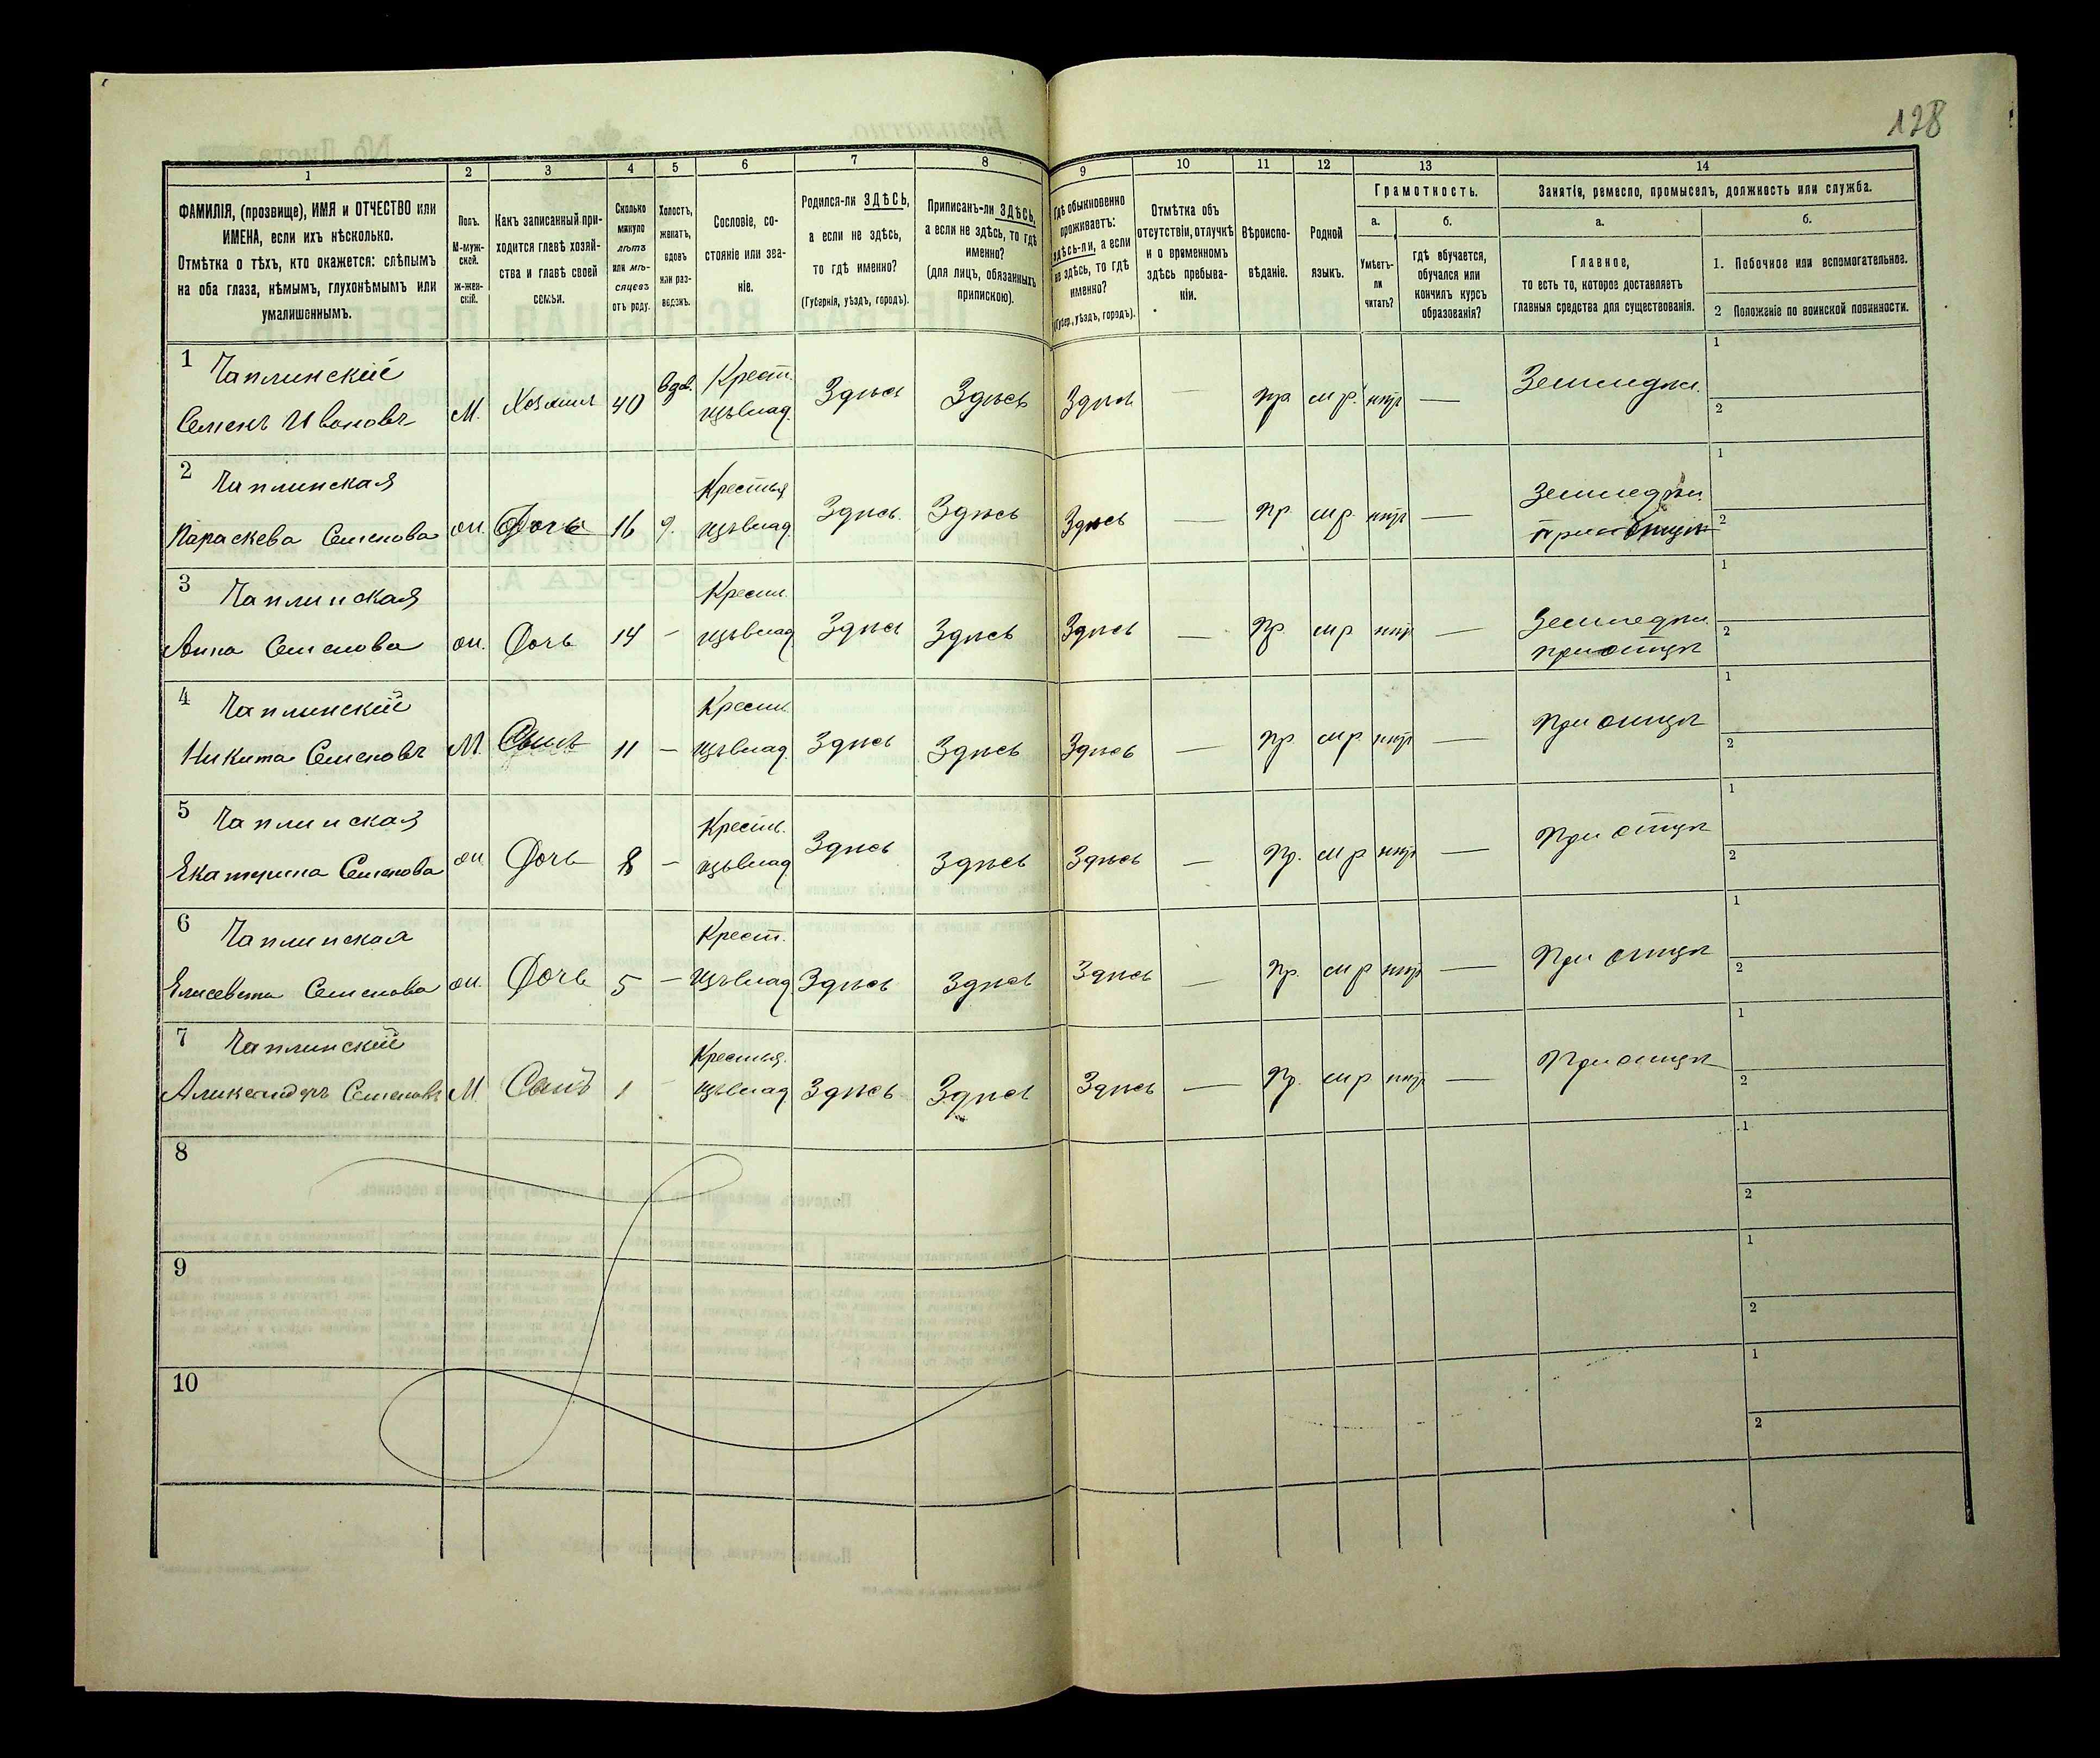 128
1
2
3
4
5
6
7
8
9
10
11
12
13
14
ФАМИЛІЯ, (прозвище), ИМЯ и ОТЧЕСТВО или
ИМЕНА, если ихъ нѣсколько.
Отмѣтка о тѣхъ, кто окажется: слѣпымъ
на оба глаза, нѣмымъ, глухонѣмымъ или
умалишеннымъ.
Полъ.
М-муж-
ской.
Ж-жен-
скій.
Какъ записанный при-
ходится главѣ хозяй-
ства и главѣ своей
семьи.
Сколько
минуло
лѣтъ
или мѣ-
сяцевъ
отъ роду.
Холостъ,
женатъ,
вдовъ
или раз-
веденъ.
Сословіе, со-
стояніе или зва-
ніе.
Родился-ли ЗДѢСЬ,
а если не здѣсь,
то гдѣ именно?
(Губернія, уѣздъ, городъ).
Приписанъ-ли ЗДѢСЬ,
а если не здѣсь, то гдѣ
именно?
(для лицъ, обязанныхъ
припискою).
Гдѣ обыкновенно
проживаетъ:
здѣсь-ли, а если
не здѣсь, то гдѣ
именно?
(Губер., уѣздъ, городъ).
Отмѣтка объ
отсутствіи, отлучкѣ
и о временномъ
здѣсь пребыва-
ніи.
Вѣроиспо-
вѣданіе.
Родной
языкъ.
Грамотность.
а.
Умѣетъ-
ли
читать?
б.
гдѣ обучается,
обучался или
кончилъ курсъ
образованія?
Занятіе, ремесло, промыселъ, должность или служба.
а.
Главное,
то есть то, которое доставляетъ
главныя средства для существованія.
б.
1. Побочное или вспомогательное.
2 Положеніе по воинской повинности.
1 Чаплинскій
Семенъ Ивановъ М. Хозяинъ 40 вдов. Крест. Здѣсь Здѣсь Здѣсь — пр м р. —
1
2
2 Чаплинская
Параскева Семенова Дочь 16 Крестья Здѣсь. Здѣсь Здѣсь — пр. м р. —
1
2
3 Чаплинская
Анна Семенова Дочь 14 - Крест. Здѣсь Здѣсь Здѣсь — пр. м р —
при отцѣ
1
2
4 Чаплинскій
Никита Семеновъ М. Сынъ 11 — Крест. Здѣсь Здѣсь Здѣсь — пр. м р. — при отцѣ
1
2
5 Чаплинская
Екатерина Семенова Дочь 8 — Крест. Здѣсь Здѣсь Здѣсь — пр. м р — при отцѣ
1
2
6 Чаплинская
Елисевета Семенова Дочь 5 — Крест. Здѣсь Здѣсь Здѣсь — пр. м р — при отцѣ
1
2
7 Чаплинскій
Александръ Семеновъ М. Сынъ 1 - Крестья. Здѣсь Здѣсь Здѣсь — пр. м р — при отцѣ
1
2
8
1
2
9
1
2
10
1
2